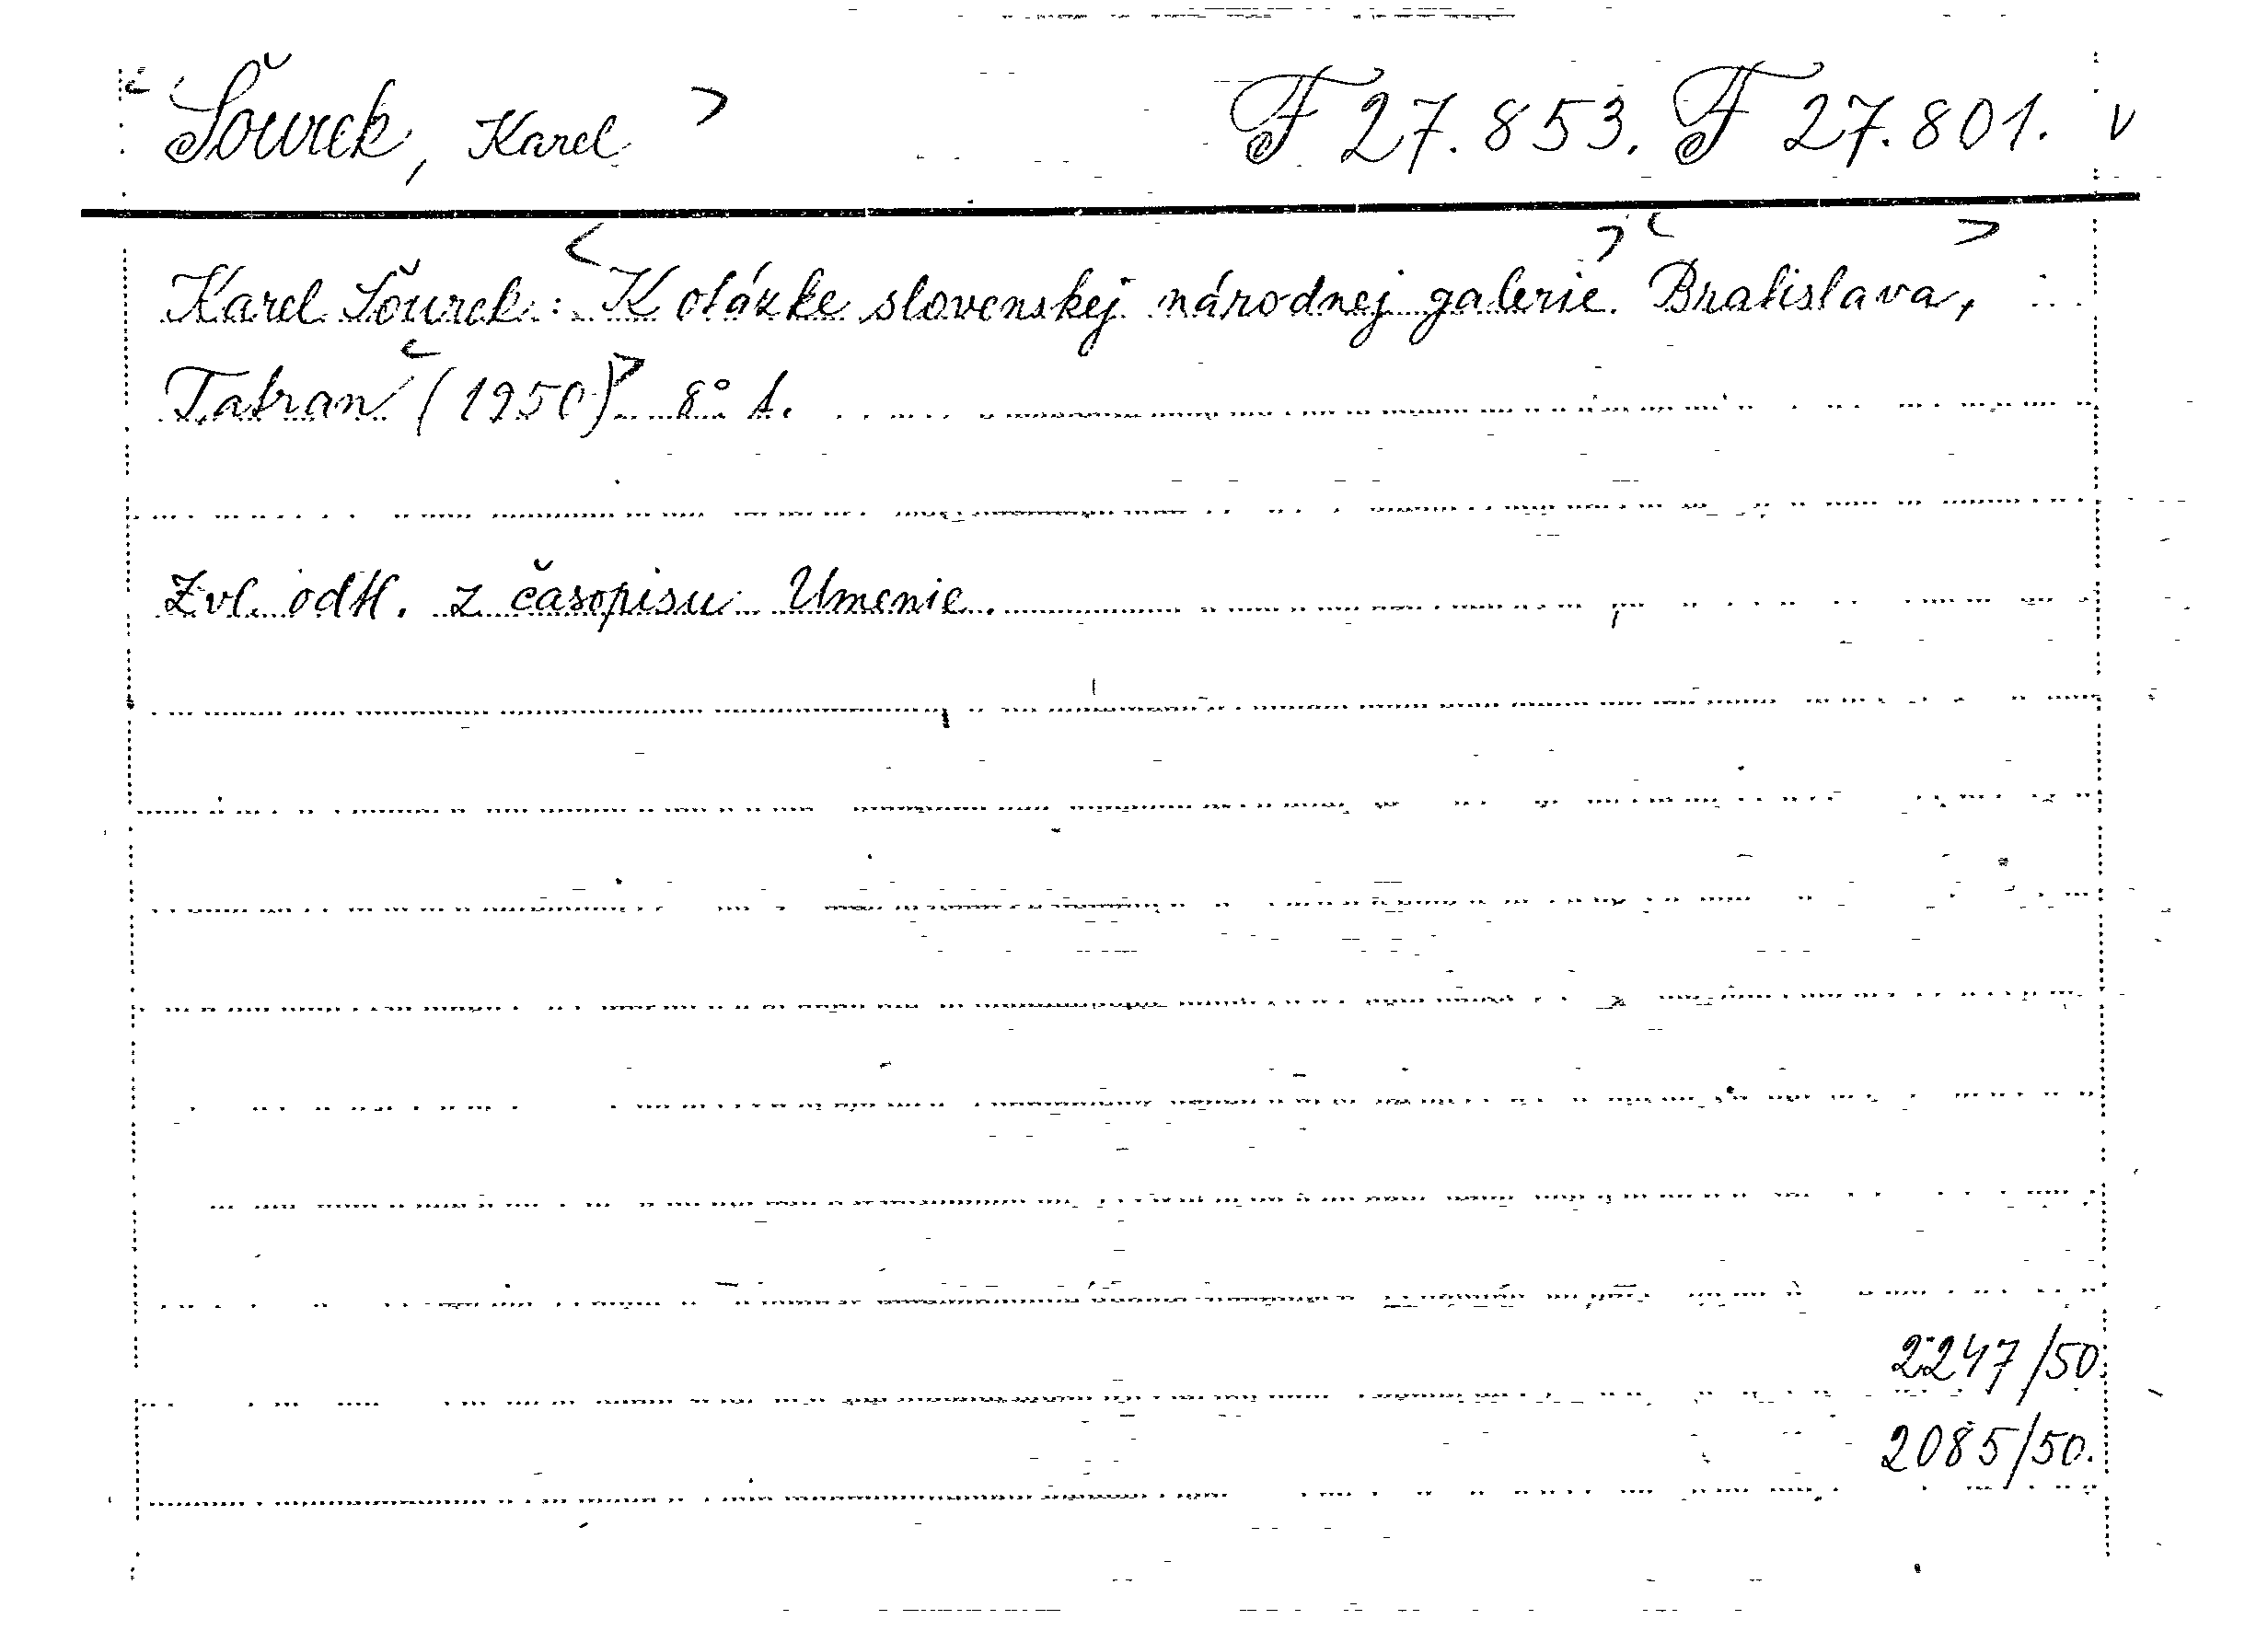 Šourek, Karel F 27.853. F 27.801. v
Karel Šourek: K otázke slovenskej národnej galerie. Bratislava,
Tatran (1950) 8° s.
Zvl. odtl. z časopisu Umenie.
2247/50.
2085/50.